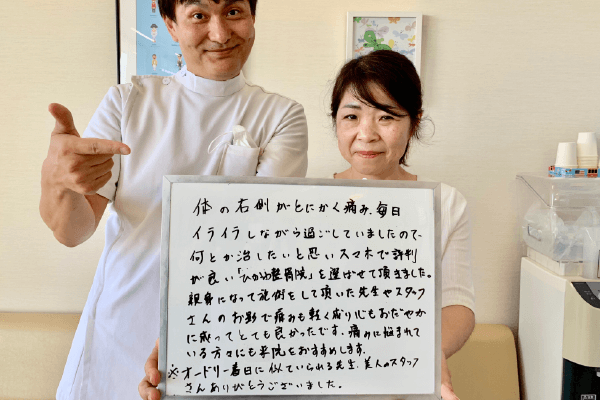 体の右側がとにかく痛み、毎日
イライラしながら過ごしていましたので、
何とか治したいと思いスマホで評判
が良い「ひかわ整骨院」を選ばせて頂きました。
親身になって施術をして頂いた先生やスタッフ
さんのお影で痛みも軽く成り心もおだやか
に成ってとても良かったです。痛みに悩まれて
いる方々にも来院をおすすめします。
※オードリー春日に似ていられる先生、美人のスタッフ
さんありがとうございました。